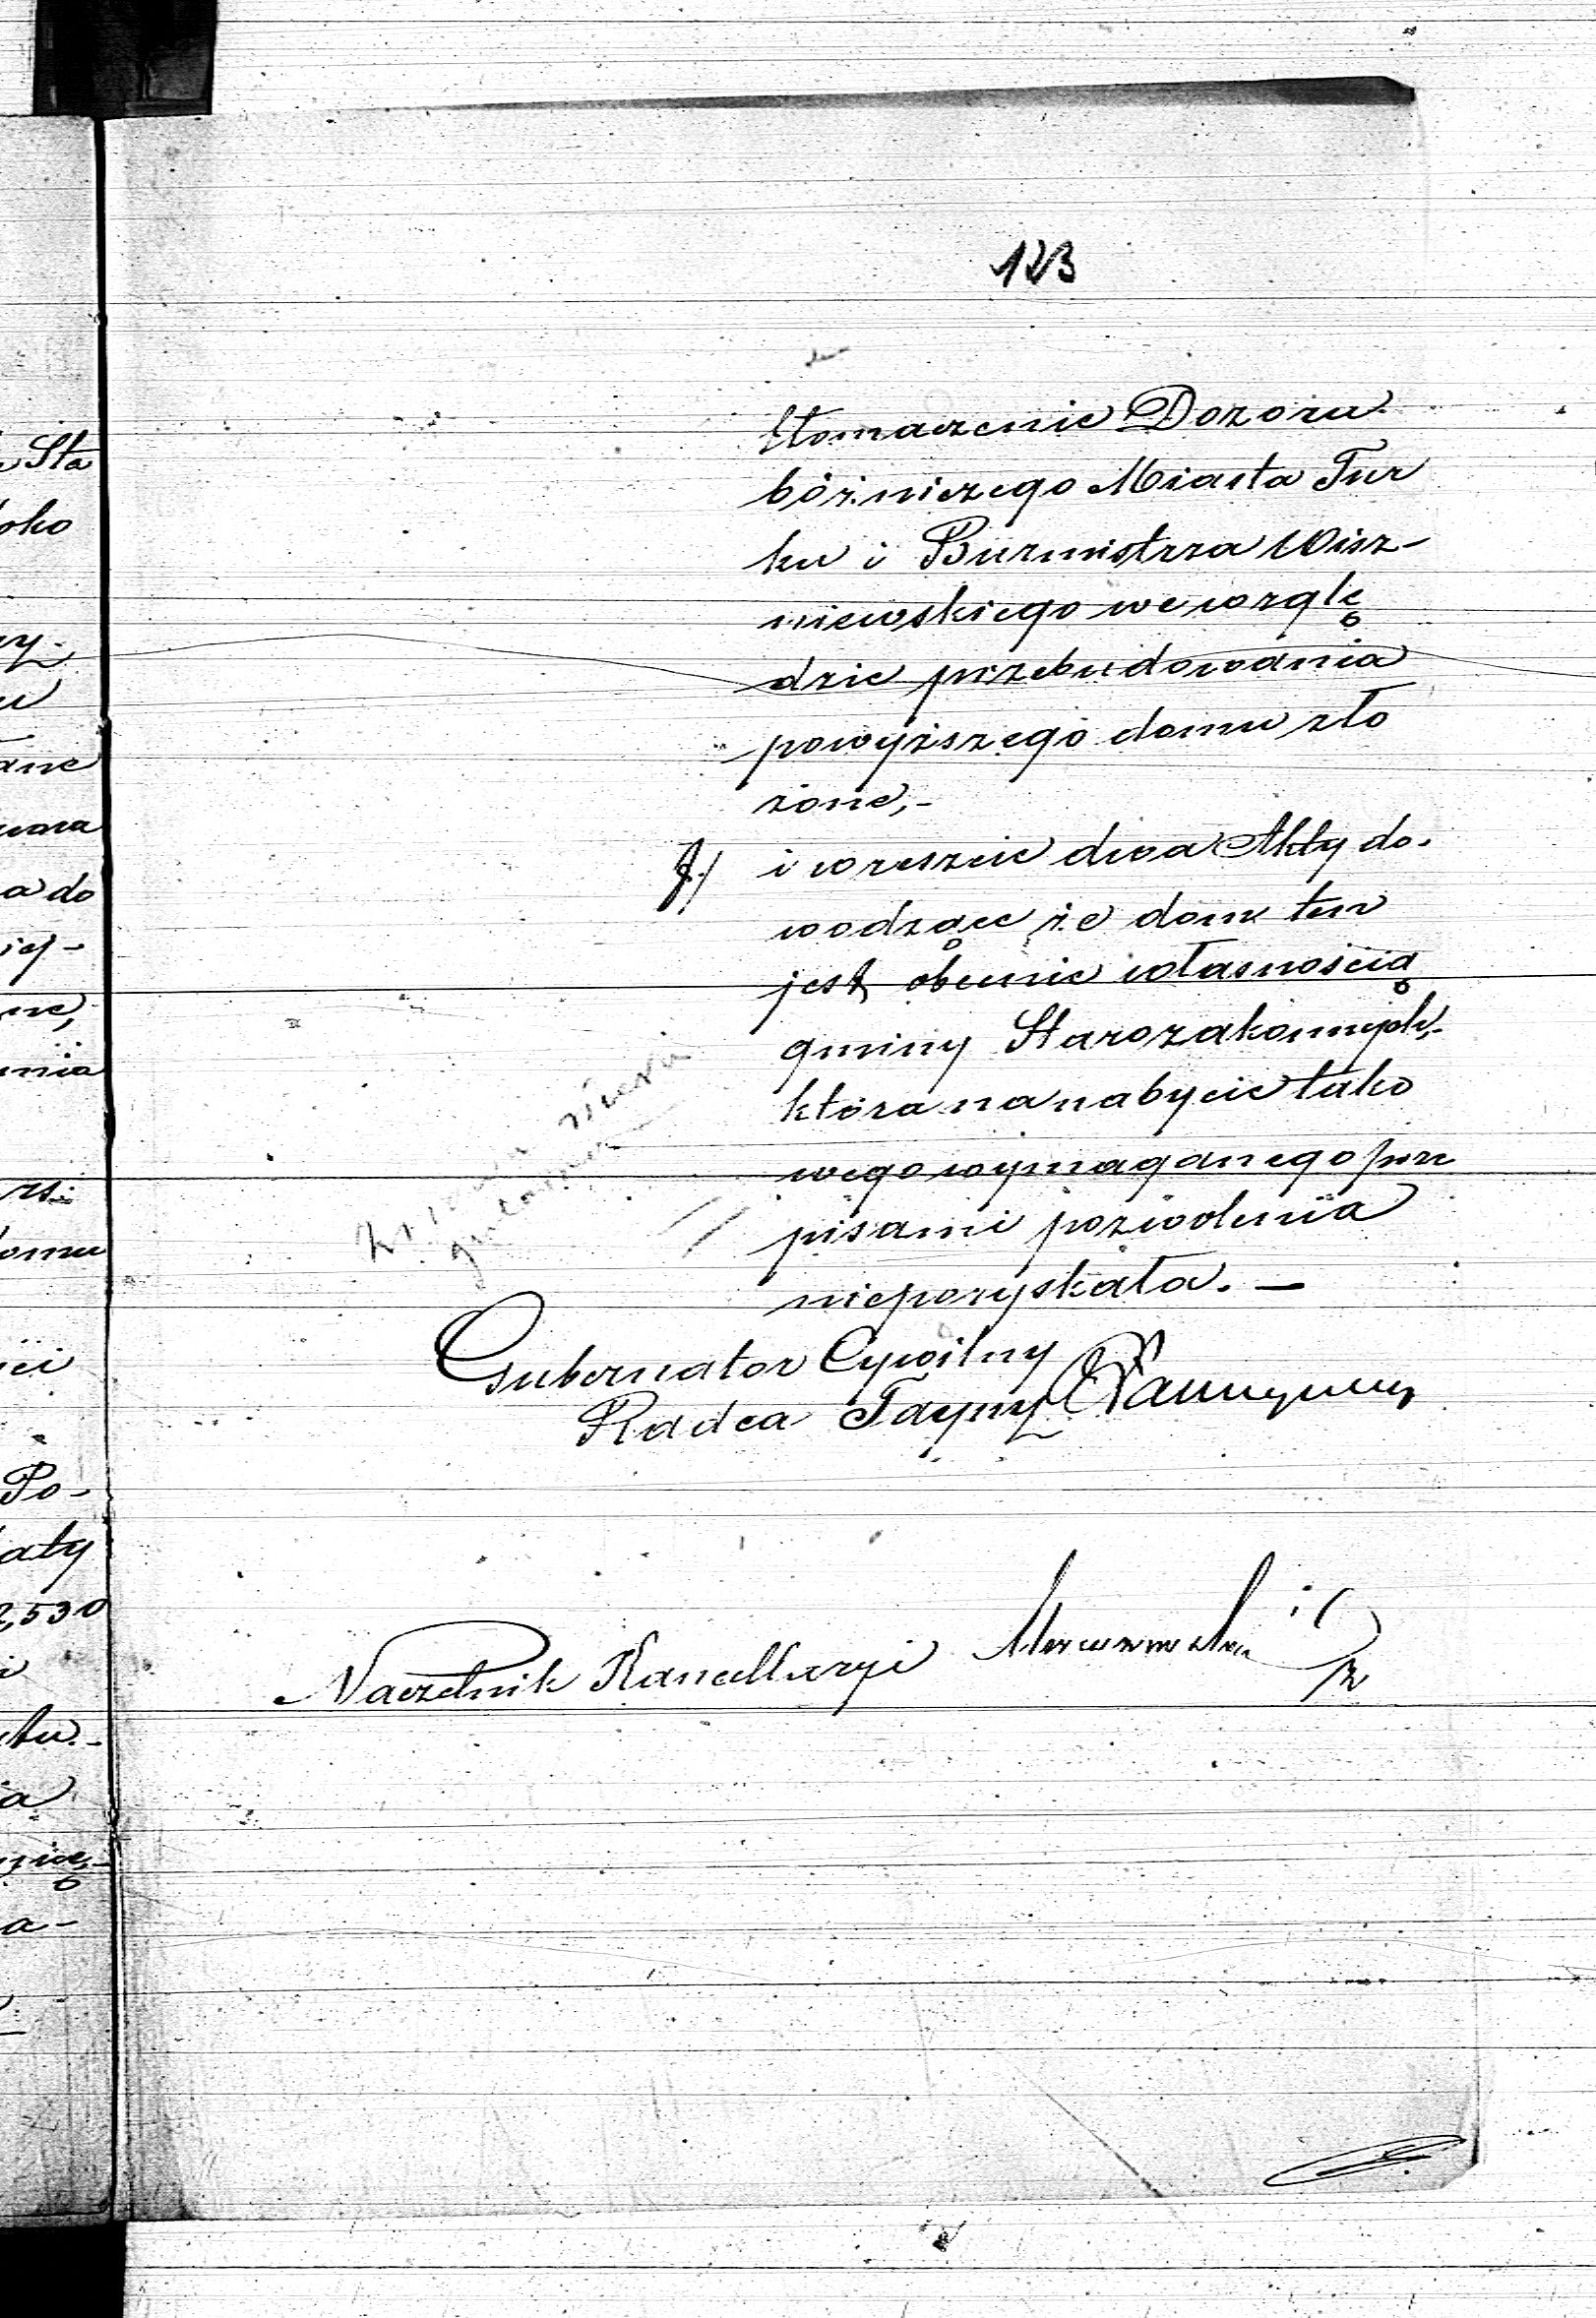 123
tłomaczenie Dozoru
bóżniczego Miasta Tur
ku i Burmistrza Wisz-
niewskiego we wzglę
dzie przebudowania
powyższego domu zło
żone,-
f/ i wreszcie dwa Akty do-
wodzące że dom ten
jest obecnie własnością
gminy Starozakonnych,-
która na nabycie tako
wego wymaganego prze
pisami pozwolenia
niepozyskała. —
Gubernator Cywilny
Radca Tayny
Naczelnik Kancellaryi
Sta
oko
ane
a do
ne,
nia
rs:
omu
Po-
aty
2,530